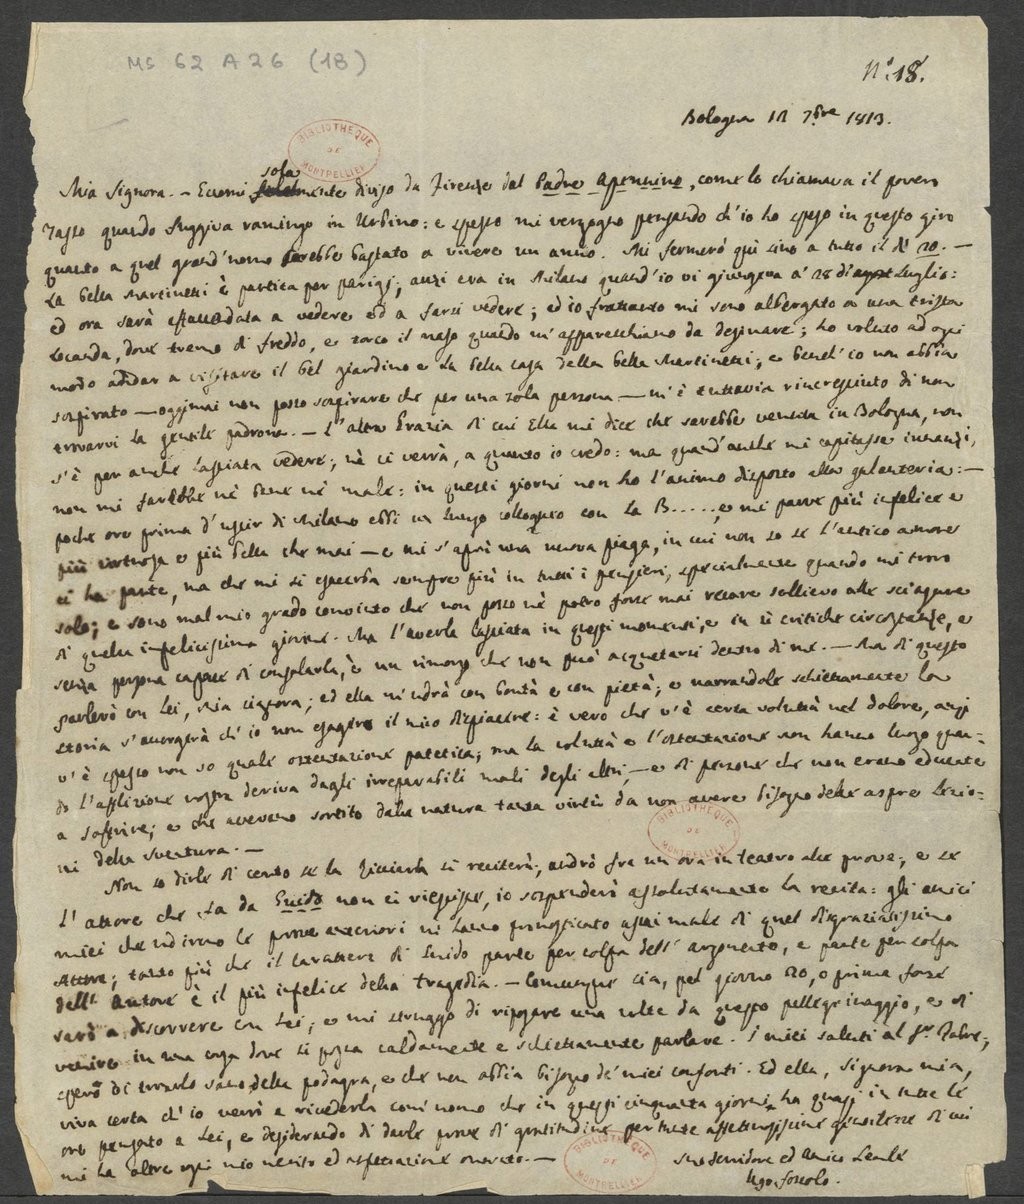 Ms 62 A 26 (18)
N.° 18.
BIBLIOTHEQUE DE MONTPELLIER
Bologna 12 7bre 1813.
sola
Mia Signora. — Eccomi mente diviso da Firenze dal Padre Apennino, come lo chiamava il povero
Tasso quando fuggiva ramingo in Urbino: e spesso mi vergogno pensando ch'io ho speso in questo giro
quanto a quel grand'uomo sarebbe bastato a vivere un anno. Mi fermerò qui sino a tutto il dì 20. —
La bella Martinetti è partita per Parigi; anzi era in Milano quand'io vi giungeva a' 28 di Luglio:
ed ora sarà andata a vedere ed a farsi vedere; ed io frattanto mi sono albergato a una trista
locanda, dove tremo di freddo, e torco il naso quando m'apparecchiano da desinare; ho voluto ad ogni
modo andar a visitare il bel giardino e la bella casa della bella Martinetti; e bench'io non abbia
sospirato — oggimai non posso sospirare che per una sola persona — m'è tuttavia rincresciuto di non
trovarvi la gentile padrona. — L'altra Grazia di cui Ella mi dice che sarebbe venuta in Bologna, non
s'è per anche lasciata vedere; nè ci verrà, a quanto io credo: ma quand'anche mi capitasse innanzi,
non mi farebbe nè bene nè male: in questi giorni non ho l'animo disposto alla galanteria: —
poche ore prima d'uscir di Milano ebbi un lungo colloquio con la B....., e mi parve più infelice e
più virtuosa e più bella che mai — e mi s'aprì una nuova piaga, in cui non so se l'antico amore
ci ha parte, ma che mi si esacerba sempre più in tutti i pensieri, specialmente quando mi trovo
solo; e sono mal mio grado convinto che non posso nè potrò forse mai recare sollievo alle sciagure
di quella infelicissima giovine. Ma l'averla lasciata in questi momenti, e in sì critiche circostanze, e
senza persona capace di consolarla, è un rimorso che non può acquetarsi dentro di me. — Ma di questo
parlerò con Lei, Mia signora; ed ella m'udrà con bontà e con pietà; e narrandole schiettamente la
storia s'accorgerà ch'io non esagero il mio dispiacere: è vero che v'è certa voluttà nel dolore, anzi
v'è spesso non so quale ostentazione patetica; ma la voluttà e l'ostentazione non hanno luogo quan-
do l'afflizione nostra deriva dagli irreparabili mali degli altri, — e di persone che non erano educate
a soffrire; e che avevano sortito dalla natura tanta virtù da non avere bisogno delle aspre lezio-
ni della sventura. —
BIBLIOTHEQUE DE MONTPELLIER
Non so dirle di certo se la Ricciarda si reciterà; andrò fra un'ora in teatro alle prove; e se
l'attore che fa da Guido non ci riescisse, io sospenderò assolutamente la recita: gli amici
miei che udirono le prove anteriori mi hanno pronosticato assai male di quel disgraziatissimo
Attore; tanto più che il carattere di Guido parte per colpa dell'argomento, e parte per colpa
dell'Autore è il più infelice della tragedia. — Comunque sia, pel giorno 20, o prima forse
sarò a discorrere con Lei; e mi struggo di riposare una volta da questo pellegrinaggio, e di
venire in una casa dove si possa caldamente e schiettamente parlare. I miei saluti al Sr. Fabre;
spero di trovarlo sano della podagra, e che non abbia bisogno de' miei conforti. Ed ella, signora mia,
viva certa ch'io verrò a rivederla com'uomo che in questi cinquanta giorni ha quasi in tutte le
ore pensato a Lei, e desiderando di darle prove di gratitudine per tante affettuosissime di cui
mi ha oltre ogni mio merito ed aspettazione onorato. —
BIBLIOTHEQUE DE MONTPELLIER
Suo servidore ed Amico Leale
Ugo Foscolo.